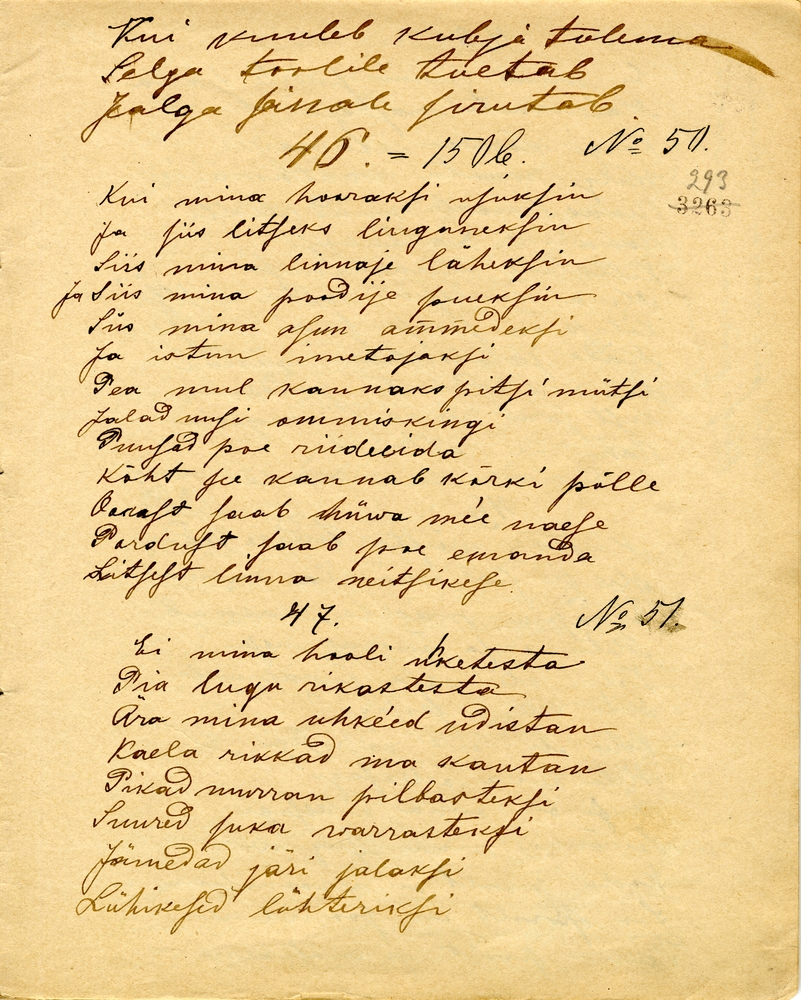 Kui kuuleb kubja tulema
Selga toolile toetab
Jalga sirutab
46. = 150 b. № 50.
293
3263
Kui mina hooraksi ujuksin
Ja siis litseks linganeksin
Siis mina linnaje läheksin
Ja Siis mina poodije pueksin
Siis mina asun ammedeksi
Ja istun imetajaksi
Pea mul kannaks pitsi mütsi
Jalad uusi ommiskingi
Puusad poe riideeida
Kõht see kannab kõrki põlle
Oorast saab hüwa mée naese
Pordust saab poe emanda
Litsest linna neitsikese
47. № 51.
Ei mina hooli uhketesta
Pia lugu rikastesta
Ära mina uhkéed udistan
Kaela rikkad ma kautan
Pikad murran pilbasteksi
Suured puka warrasteksi
Jämedad järi jalaksi
Lühikesed lähteriksi